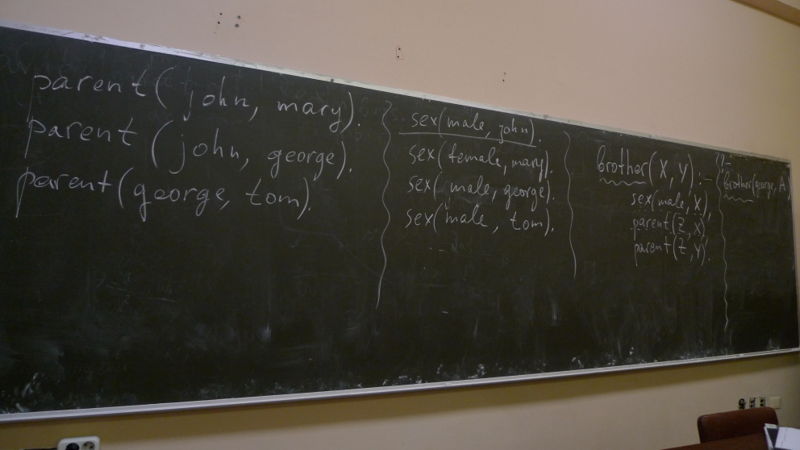 parent(john, mary).
parent(john, george).
parent(george, tom).
sex(male, john).
sex(female, mary).
sex(male, george).
sex(male, tom).
brother(X, Y):-
sex(male, X),
parent(Z, X),
parent(Z, Y).
?-
brother(george, A)